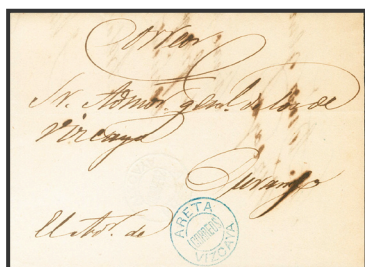 Correos
Sr. Admor. gral. de los de
Vizcaya
Durango
El Ador. de
ARETA
CORREOS
VIZCAYA